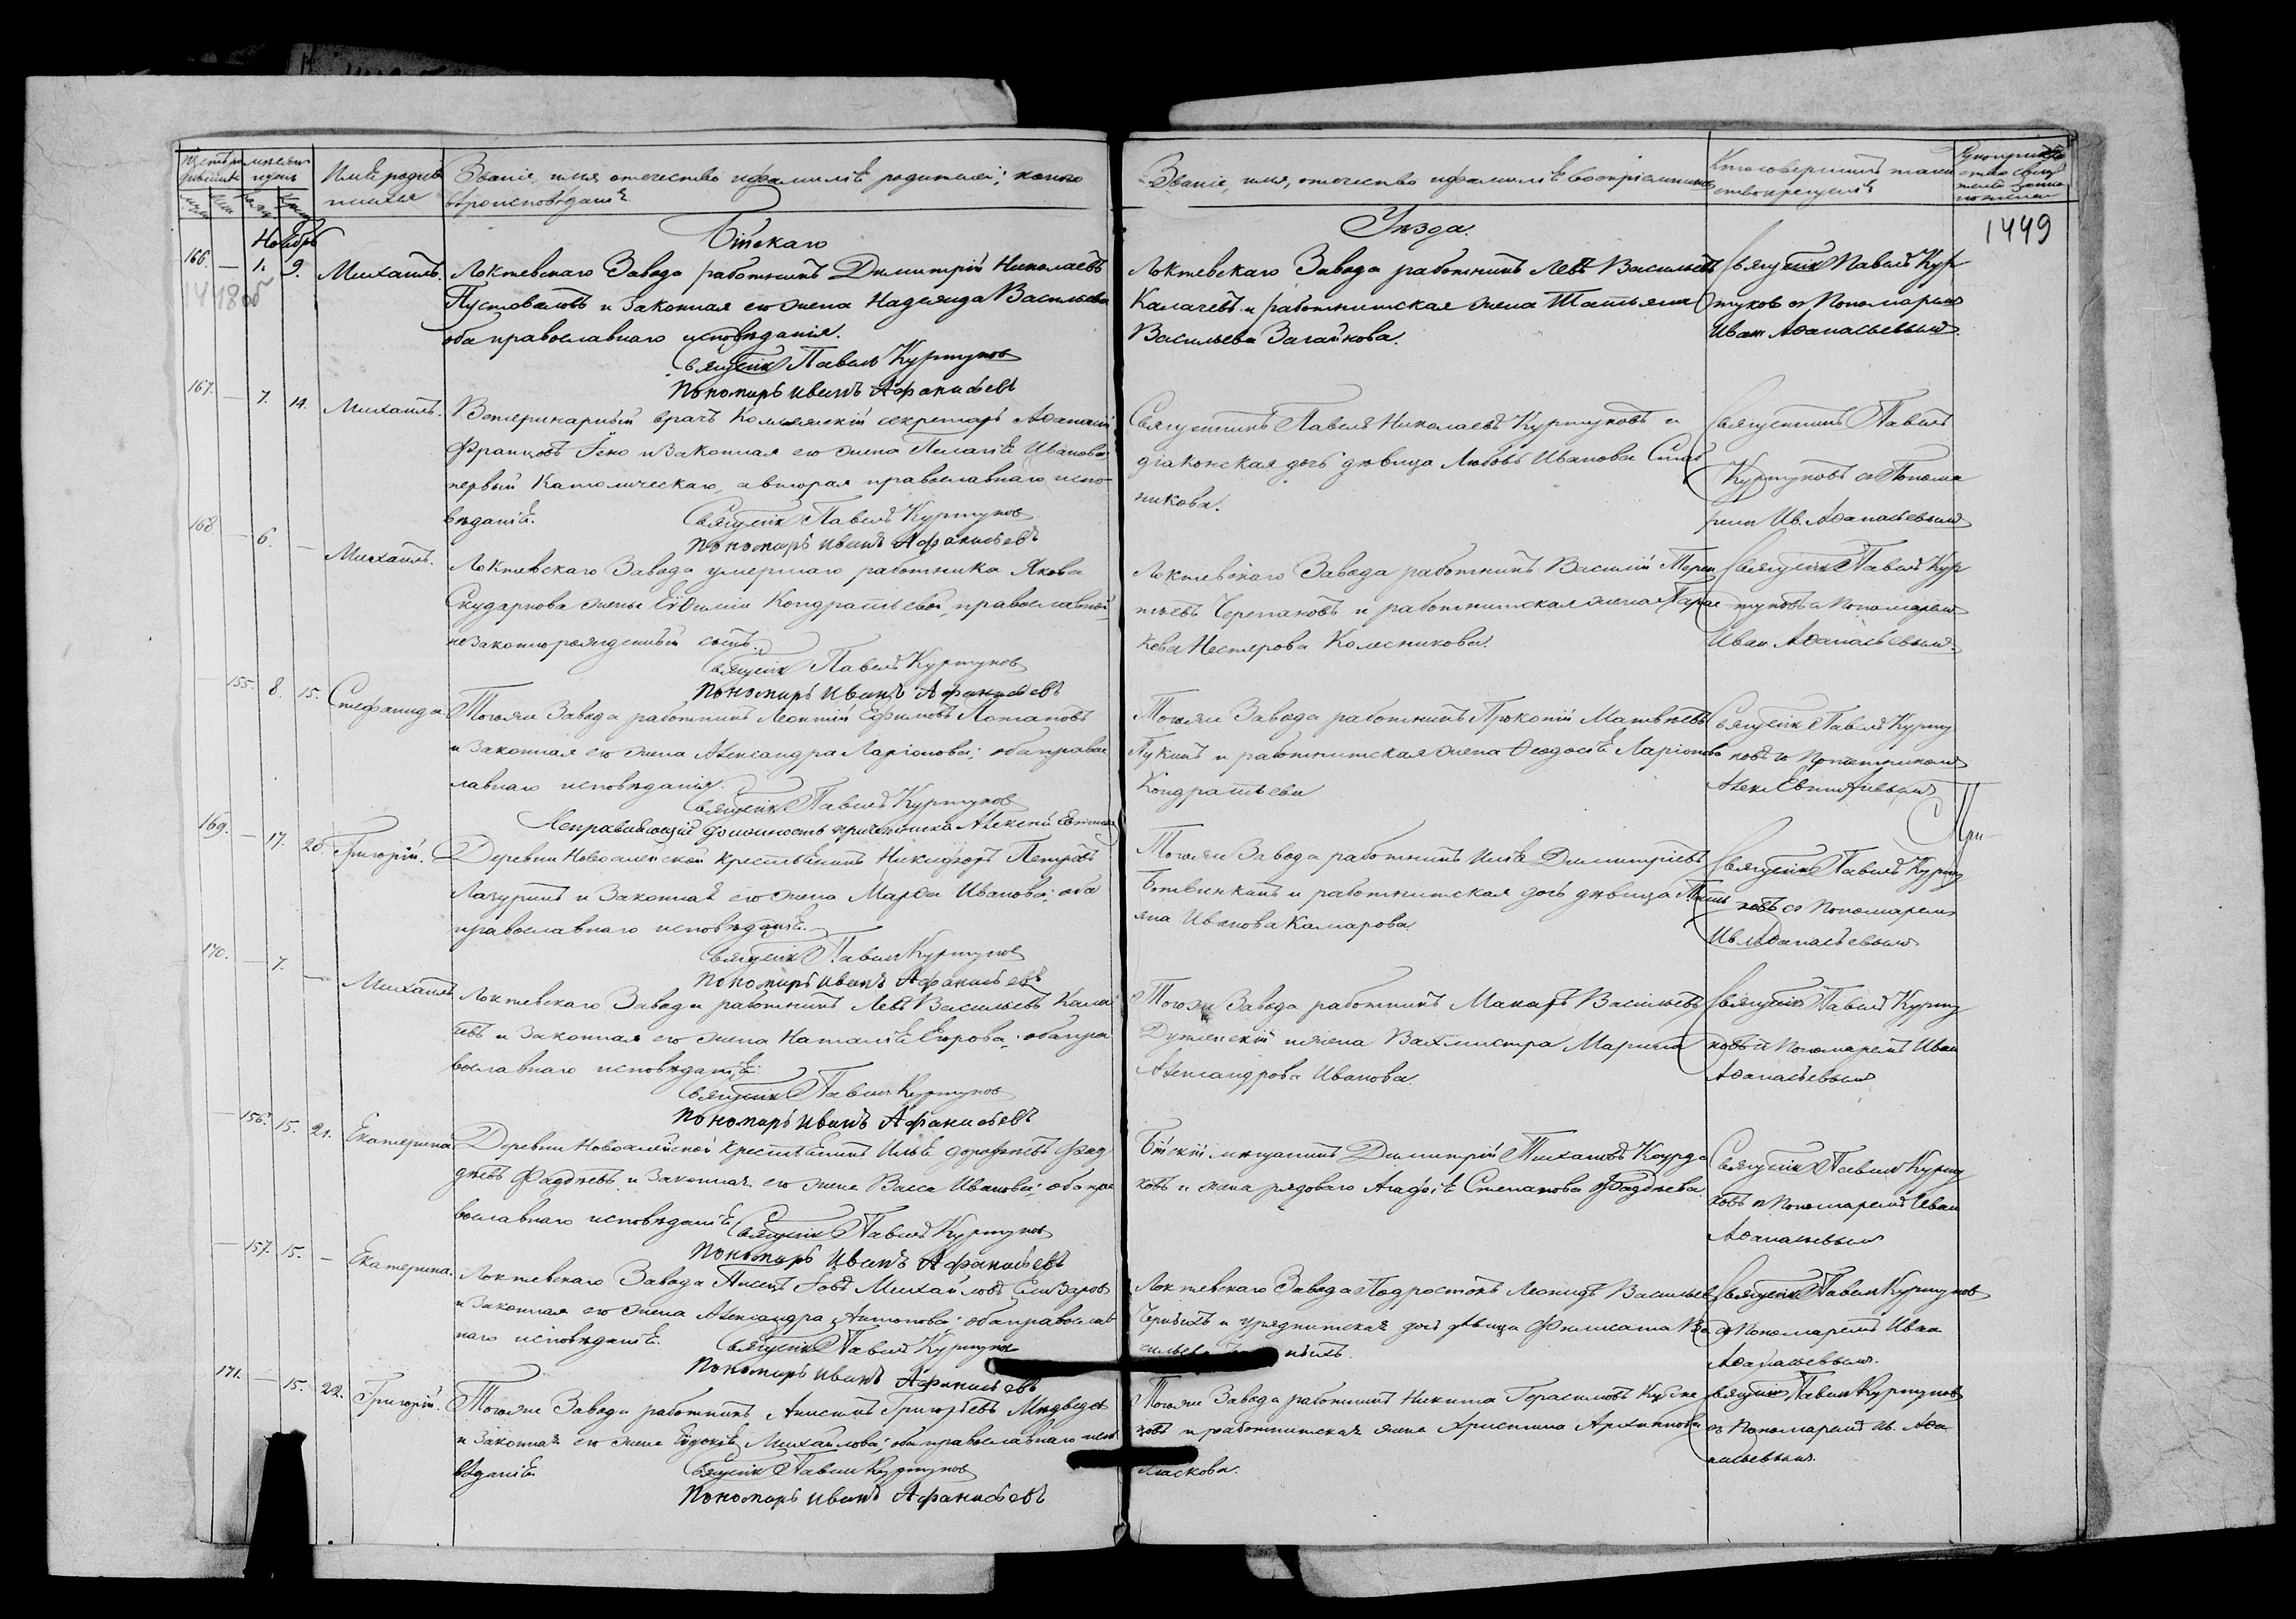 Имѣ родив
шихся
Званіе, имя, отечество и фамиліѣ родителей; какого
вѣроисповѣданіѣ.
Званіе, имя, отечество и фамиліѣ воспріемниковъ
Кто совершилъ таин
ство крещеніѣ
1449
Ноябрь
Бійскаго
Уѣзда.
166. — 1. 9. Михаилъ.
Локтевскаго Завода работникъ Димитрій Николаевъ
Пустоваловъ и законная его жена Надежда Васильева
оба православнаго исповѣданія.
Священникъ Павелъ Куртуковъ
Пономарь Иванъ Афанасьевъ
Локтевскаго Завода работникъ Левъ Васильевъ
Калачевъ и работничская жена Татьяна
Васильева Загайнова.
Священникъ Павелъ Кур
туковъ съ Пономаремъ
Иван Аѳанасьевымъ.
1448об
167. — 7. 14. Михаилъ.
Ветеринарный врачъ Коллежскій секретарь Аѳанасій
Францовъ и законная его жена Пелагіѣ Иванова
первый Католическаго, а вторая православнаго испо-
вѣданіѣ.
Священникъ Павелъ Куртуковъ
Пономарь Иванъ Афанасьевъ
Священникъ Павелъ Николаевъ Куртуковъ и
діаконская дочь дѣвица Любовь Иванова
никова.
Священникъ Павелъ
Куртуковъ съ Понома
ремъ Ив. Аѳанасьевымъ
168 — 6. — Михаилъ.
Локтевскаго Завода умершаго работника Якова
Скударнова жены Евѳиміи Кондратьевой, православной,
незаконнорожденный сынъ.
Священникъ Павелъ Куртуковъ
Пономарь Иванъ Афанасьевъ
Локтевскаго Завода работникъ Василій Терен
тьевъ Черепановъ и работничская жена Парас
кева Нестерова Колесникова.
Священникъ Павелъ Кур
туковъ съ Пономаремъ
Иван Аѳанасьевымъ.
— 155. 8. 15. Стефанида
Тогоже Завода работникъ Леонтій Ефимовъ Потаповъ
и законная его жена Александра Ларіонова; оба правос
лавнаго исповѣданія.
Священникъ Павелъ Куртуковъ
Исправляющій должность причетника Алексѣй
Тогоже Завода работникъ Прокопій Матвѣевъ
Пукинъ и работничская жена Ѳеодосіѣ Ларіонова
Кондратьева
Священникъ Павелъ Курту
ковъ съ Причетникомъ
169. — 17. 20. Григорій.
Деревни Новоалейской крестьянинъ Никифоръ Петровъ
Лазуринъ и законнаѣ его жена Марѳа Иванова; оба
православнаго исповѣданіѣ.
Священникъ Павелъ Куртуковъ
Пономарь Иванъ Афанасьевъ
Тогоже Завода работникъ Ильѣ Димитріевъ
Ботвинкинъ и работничская дочь дѣвица Тать
яна Иванова Камарова.
Священникъ Павелъ Курту
ковъ съ Пономаремъ
Ив. Аѳанасьевымъ
170. — 7. — Михаилъ
Локтевскаго Завода работникъ Левъ Васильевъ Кала
чевъ и законная его жена Наталіѣ Егорова; оба пра
вославнаго исповѣданіѣ.
Священникъ Павелъ Куртуковъ
Пономарь Иванъ Афанасьевъ
Тогоже Завода работникъ Макаръ Васильевъ
и жена Вахмистра Марина
Александрова Иванова.
Священникъ Павелъ Курту
ковъ съ Пономаремъ Иван
Аѳанасьевымъ
— 156. 15. 21. Екатерина.
Деревни Новоалейской крестьянинъ Ильѣ Дорофѣевъ Фад
дѣевъ Фаддѣевъ и законнаѣ его жена Васса Иванова; оба пра
вославнаго исповѣданіѣ
Священникъ Павелъ Куртуковъ
Пономарь Иванъ Афанасьевъ
Бійскій мѣщанинъ Димитрій Тихановъ Каурда
ковъ и жена рядоваго Агафіѣ Степанова Фаддѣева.
Священникъ Павелъ Курту
ковъ съ Пономаремъ Иван
Аѳанасьевымъ
— 157. 15. — Екатерина.
Локтевскаго Завода Писецъ Іовъ Михайловъ Елизаровъ
и законная его жена Александра Антонова; оба православ
наго исповѣданіѣ.
Священникъ Павелъ Куртуковъ
Пономарь Иванъ Афанасьевъ
Локтевскаго Завода Подростокъ Леонидъ Васильевъ
и урядничскаѣ дочь дѣвица Филисата Ва
сильева
Священникъ Павелъ Куртуковъ
съ Пономаремъ Иван
Аѳанасьевымъ.
171. — 15. 22. Григорій.
Тогоже Завода работникъ Анисимъ Григорьевъ Медведев
и законнаѣ его жена Евдокіѣ Михайлова; оба православнаго испо
вѣданіѣ
Священникъ Павелъ Куртуковъ
Пономарь Иванъ Афанасьевъ
Тогоже Завода работникъ Никита Герасимовъ Кузне
цовъ и работничскаѣ жена Христина Архипова
Священникъ Павелъ Куртуковъ
съ Пономаремъ Ив. Аѳа
насьевымъ.